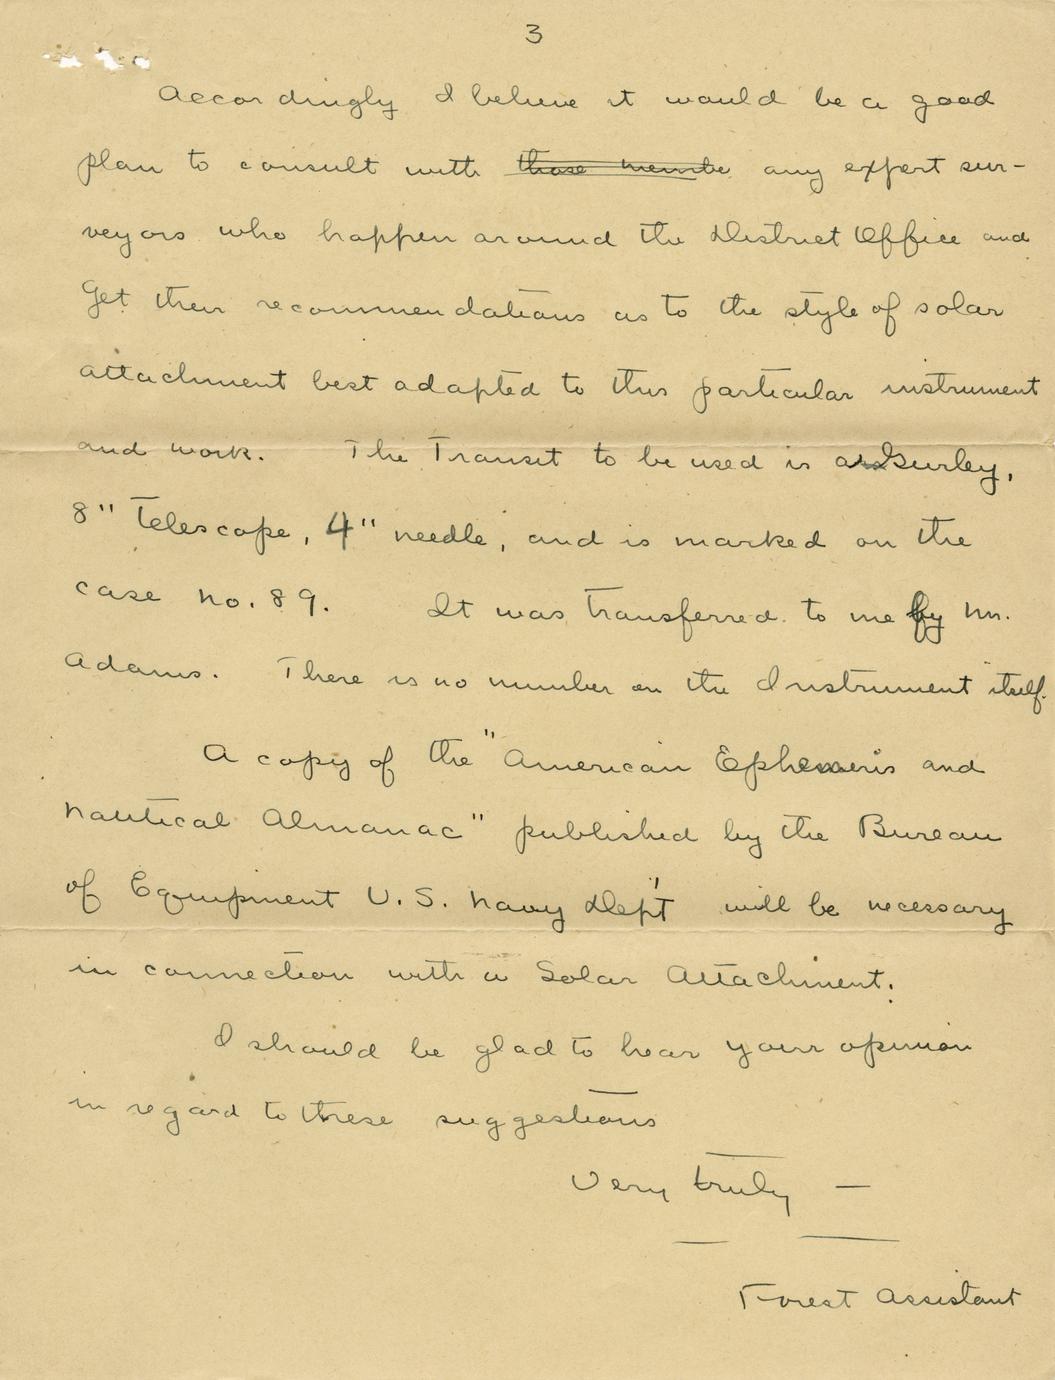 3
Accordingly I believe it would be a good
plan to consult with those membe any expert sur-
veyors who happen around the District Office and
Get their recommendations as to the style of solar
attachment best adapted to this particular instrument
and work. The Transit to be used is a Gurley,
8" Telescope, 4" needle, and is marked on the
case no. 89. It was transferred to me by Mr.
Adams. There is no number on the Instrument itself.
A copy of the "American Ephemeris and
Nautical Almanac" published by the Bureau
of Equipment U.S. Navy Dep't will be necessary
in connection with a Solar Attachment.
I should be glad to hear your opinion
in regard to these suggestions
Very truly —
Forest Assistant